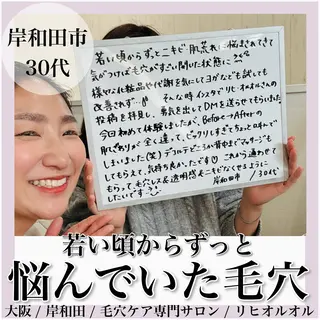 岸和田市
30代
若い頃からずっとニキビ肌荒れに悩まされてきて
気がつけば毛穴がすごい開いた状態に
様々な化粧品や代謝を気にしてヨガなども試しても
改善されず…!! そんな時インスタでリヒ・オルオルさんの
投稿を拝見し、勇気を出してDMを送らせてもらいました。
今日初めて体験しましたが、Before→Afterの
肌ざわりが全く違って、ビックリしすぎてちょっと叫んで
しまいました(笑) デコルテどころか背中までマッサージも
してもらえて、気持ち良かったです♡ これから通わせて
もらって毛穴レス&透明感&ニキビなくせるように
したいです
岸和田市 /30代
若い頃からずっと
悩んでいた毛穴
大阪 / 岸和田 / 毛穴ケア専門サロン / リヒオルオル